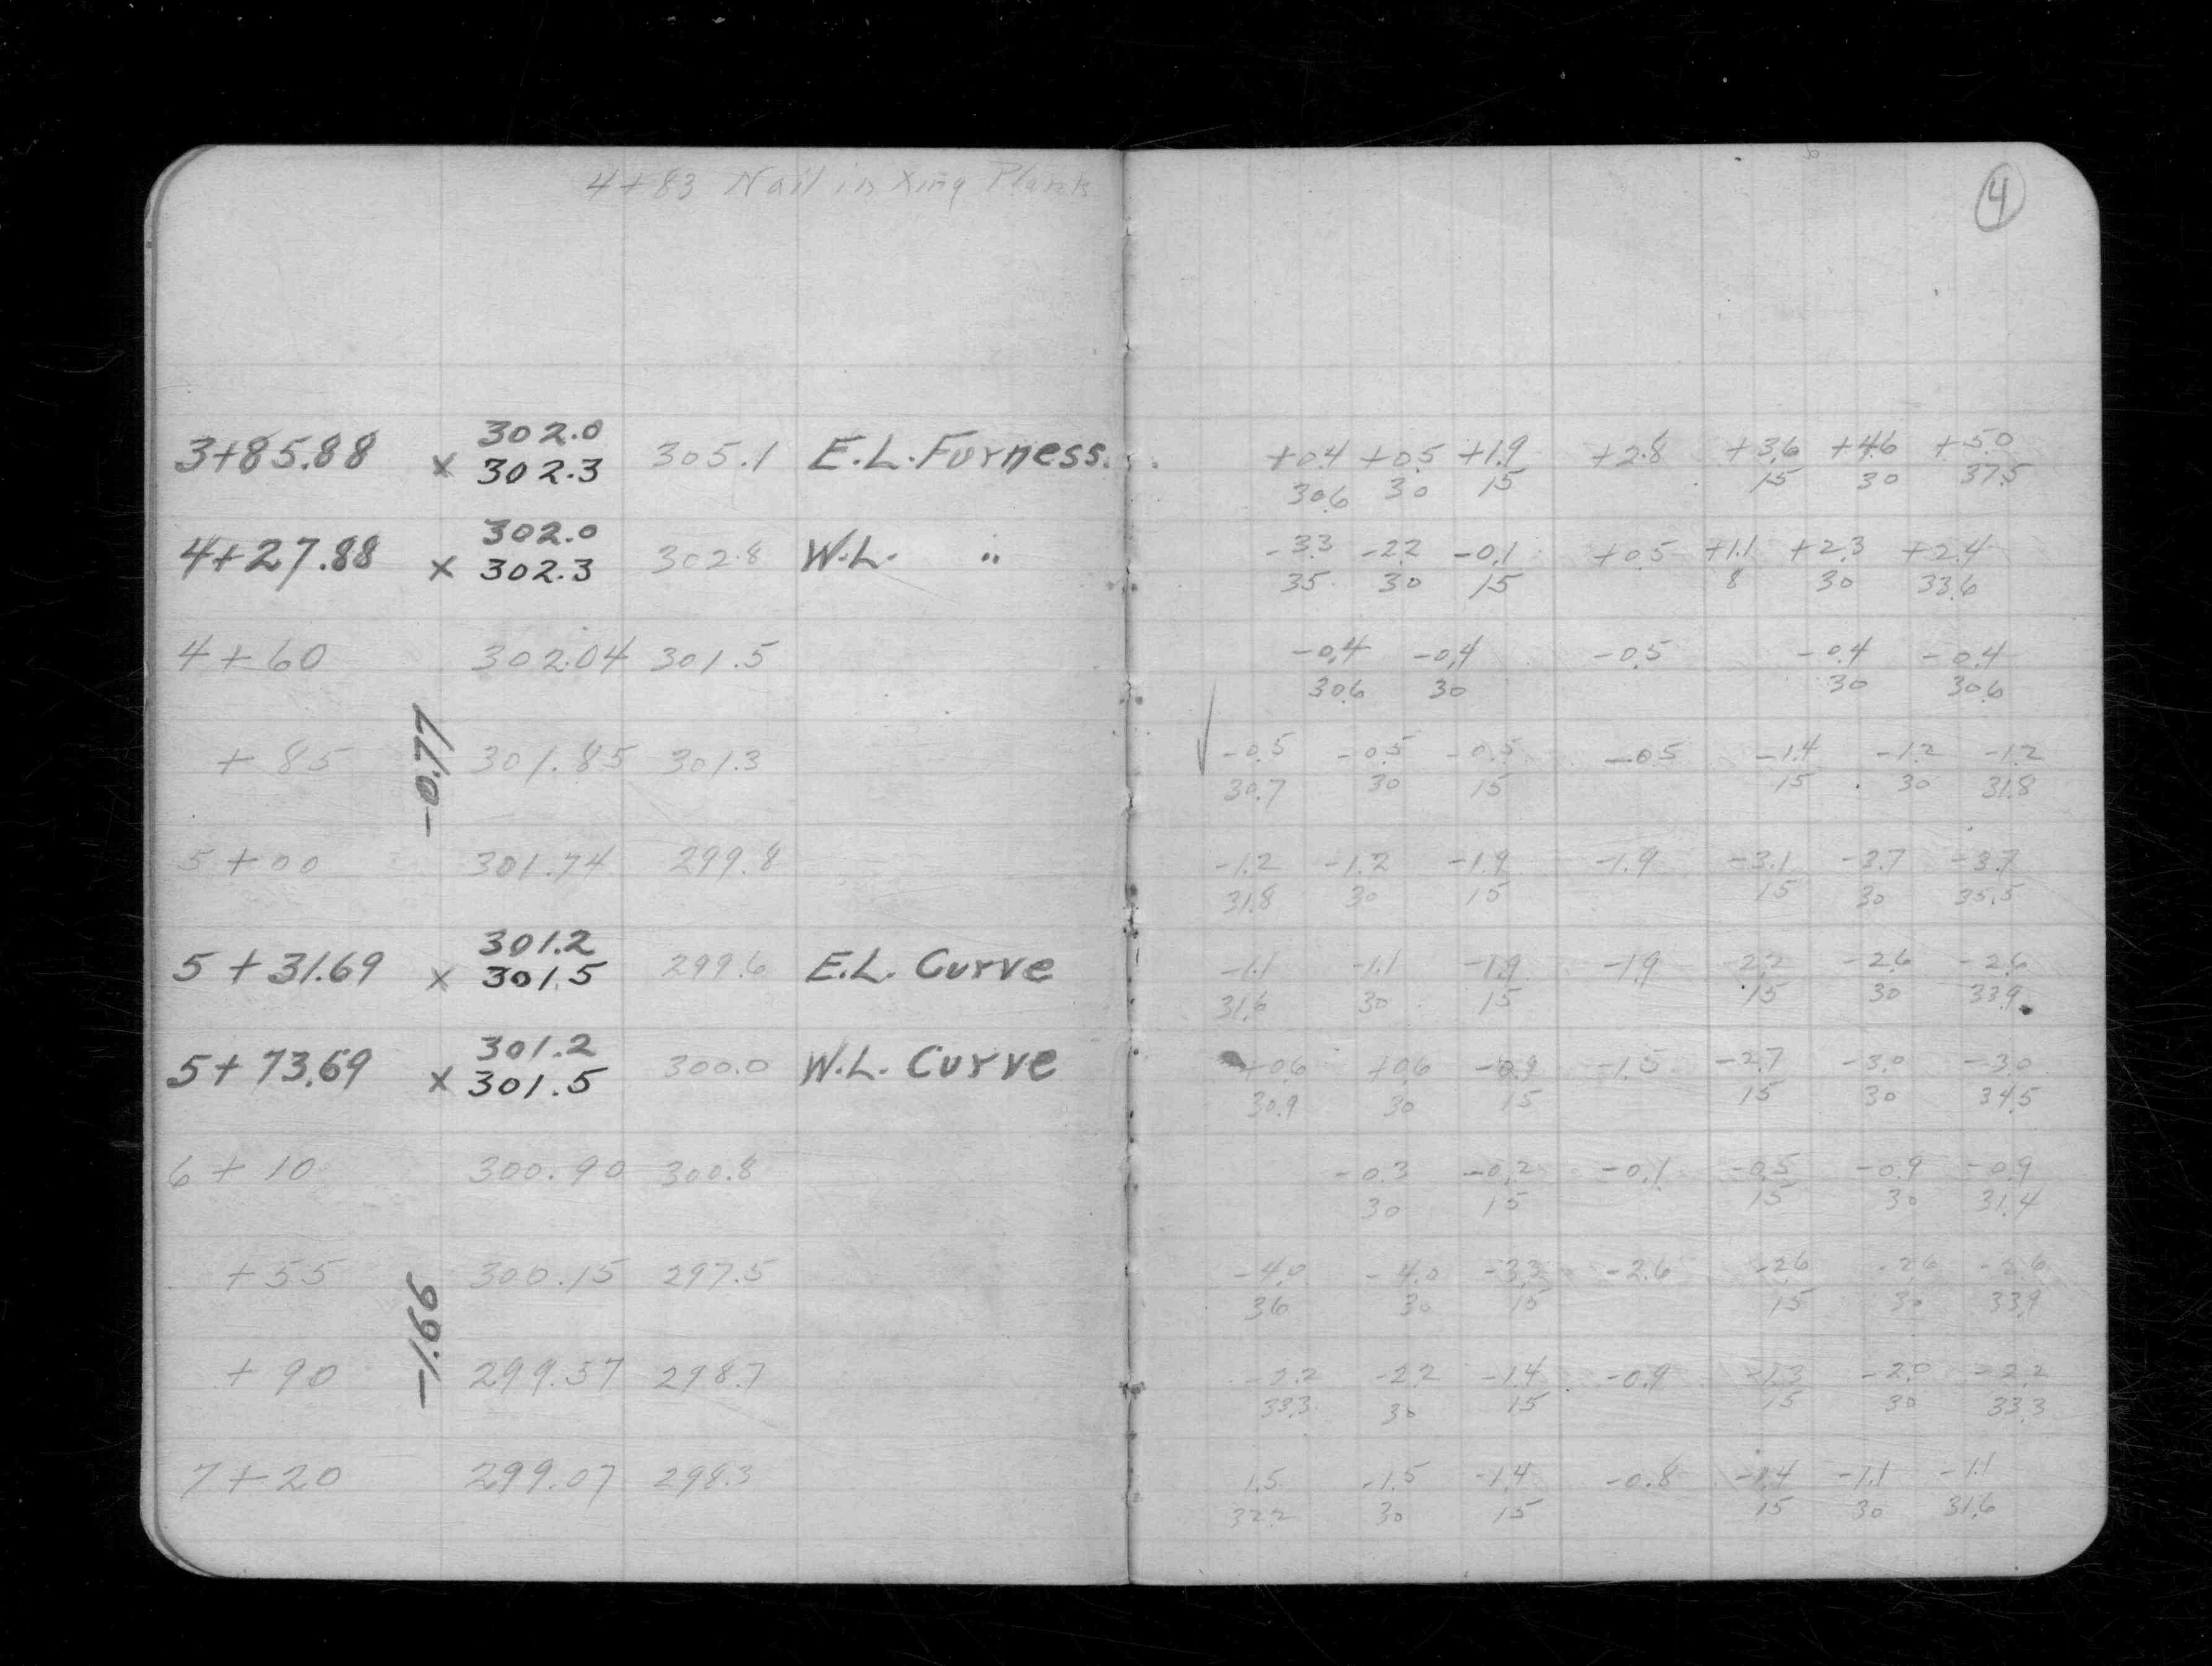 4+83 Nail in Xing Plank
4
302.0
3+85.88 x 302.3 305.1 E.L. Furness. +0.4 +0.5 +1.9 +2.8 +3.6 +4.6 +5.0
30.6 30 15 15 30 37.5
302.0
4+27.88 x 302.3 302.8 W.L. " -3.3 -2.2 -0.1 +0.5 +1.1 +2.3 +2.4
35 30 15 8 30 33.6
4+60 302.04 301.5 -0.4 -0.4 -0.5 -0.4 -0.4
30.6 30 30 30.6
+85 301.85 301.3 -0.5 -0.5 -0.5 -0.5 -1.4 -1.2 -1.2
30.7 30 15 15 30 31.8
-0.77
5+00 301.74 299.8 -1.2 -1.2 -1.9 -1.9 -3.1 -3.7 -3.7
31.8 30 15 15 30 35.5
301.2
5+31.69 x 301.5 299.6 E.L. Curve -1.1 -1.1 -1.9 -1.9 -2.2 -2.6 -2.6
31.6 30 15 15 30 33.9
301.2
5+73.69 x 301.5 300.0 W.L. Curve +0.6 +0.6 -0.9 -1.5 -2.7 -3.0 -3.0
30.9 30 15 15 30 34.5
6+10 300.90 300.8 -0.3 -0.2 -0.1 -0.5 -0.9 -0.9
30 15 15 30 31.4
+55 300.15 297.5 -4.0 -4.0 -3.3 -2.6 -2.6 -2.6 -2.6
36 30 15 15 30 33.9
-1.66
+90 299.57 298.7 -2.2 -2.2 -1.4 -0.9 -1.3 -2.0 -2.2
33.3 30 15 15 30 33.3
7+20 299.07 298.3 1.5 -1.5 -1.4 -0.8 -1.4 -1.1 -1.1
32.2 30 15 15 30 31.6